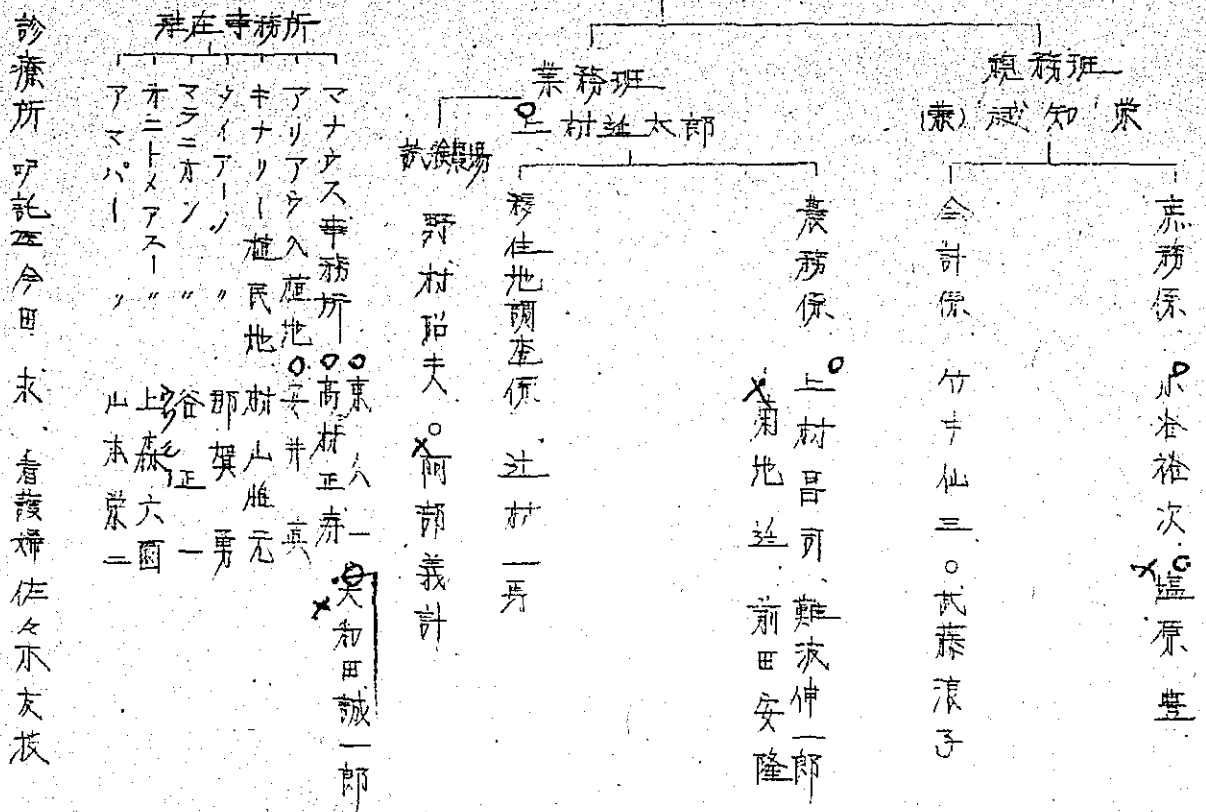 総務班
(兼) 越知栄
庶務係 水谷裕次 ○塩原豊
会計係 竹中仙三 ○武藤浪子
業務班
上村延太郎
農務係 上村昌司 難波伸一郎
菊地 前田安隆
移住地調査係 辻村一男
試験農場 野村昭夫 ○阿部義計
駐在事務所
マナウス事務所 東久一 大和田誠一郎
高村正寿
アリアウ入植地 安井真
キナリー植民地 村山雅元
タイアーノ 〃 那須勇
マテニオン 〃 谷正一
オニートメアスー 〃 上森六
アマパー 〃 山本栄二
診療所 嘱託医今田求 看護婦佐々木友枝